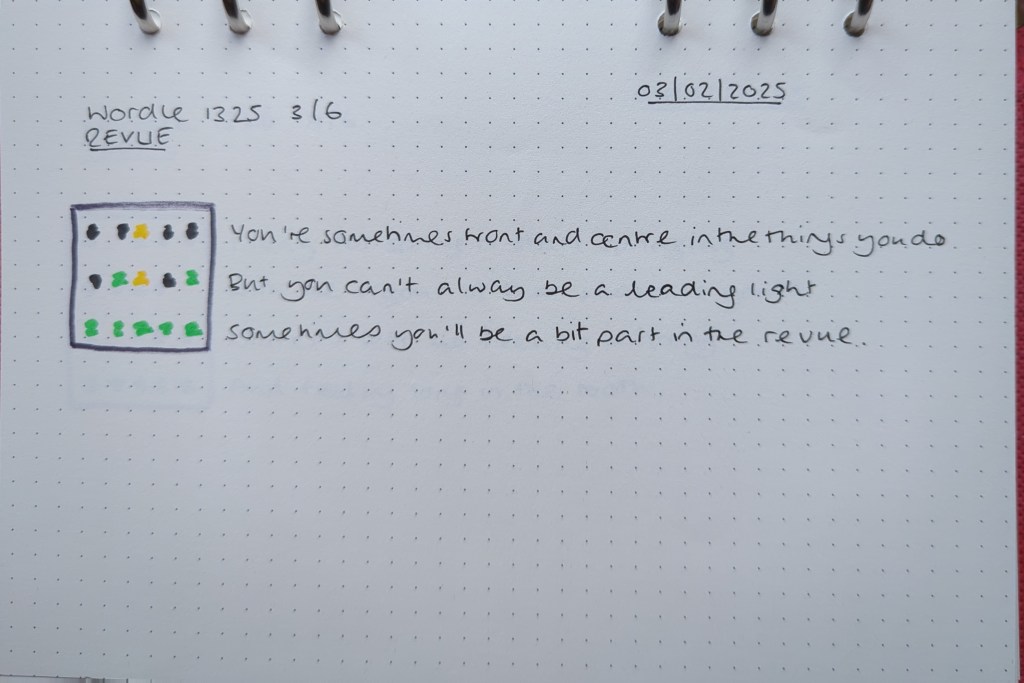 03/02/2025
Wordle 1325 3/6
REVUE
You're sometimes front and centre in the things you do
But you can't alway be a leading light
sometimes you'll be a bit part in the revue.